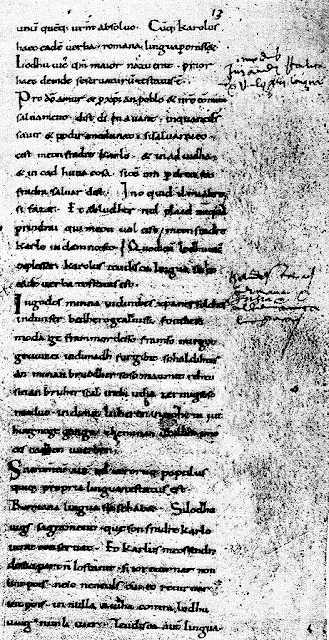 13
unũ quẽq; vrm̃ absoluo. Cũq; karolus
haec eadẽ uerba romana lingua ꝑorass&.
Lodhuuic qm̃ maior natu erat. prior
haec deinde se seruaturũ testatus ẽ.
Pro dõ amur & ꝓ xp̃ian poblo & nr̃o cõmun
saluament. dist di en auant. inquantds
sauir & podir medunat. sisaluaraieo
cist meon fradre karlo. & in aiudha
& in cad huna cosa. sicũ om ꝑ dreit son
fradra saluar dist. Ino quid il mialtre
si faz&. Et abludher nul plaid nũquã
prindrai qui meon uol cist meon fradre
karle in damno sit. Quod cũ lodhuuic
explesset. karolus teudisca lingua sic hec
eadẽ uerba testatus est.
Ingodes minna indinthes xp̃anes folches
indunser bedhero gealtnissi. fonthese
moda ge frammordesso framso mirgot
geuuizci indimadh furgibit sohaldihtes
an minan bruodher soso manmit rehtu
sinan bruher scal inthi utha zermigsoso
maduo. indimit luheren innohein iut
hing nege gango. zheminan uuillon imo
ces cadhen uuerhen.
Sacramentũ autẽ qd utrorumq; populus
quisq; propria lingua testatus est.
Romana lingua sic se habet. Si lodhu
uigs sagrament. que son fradre karlo
iurat conseruat. Et karlus meossendra
desuo partñ lostanit. si ioreturnar non
lint pois. neio neneuls cuieo returnar
int pois. in nulla aiudha contra lodhu
uuig nunli iuer. Teudisca aut lingua